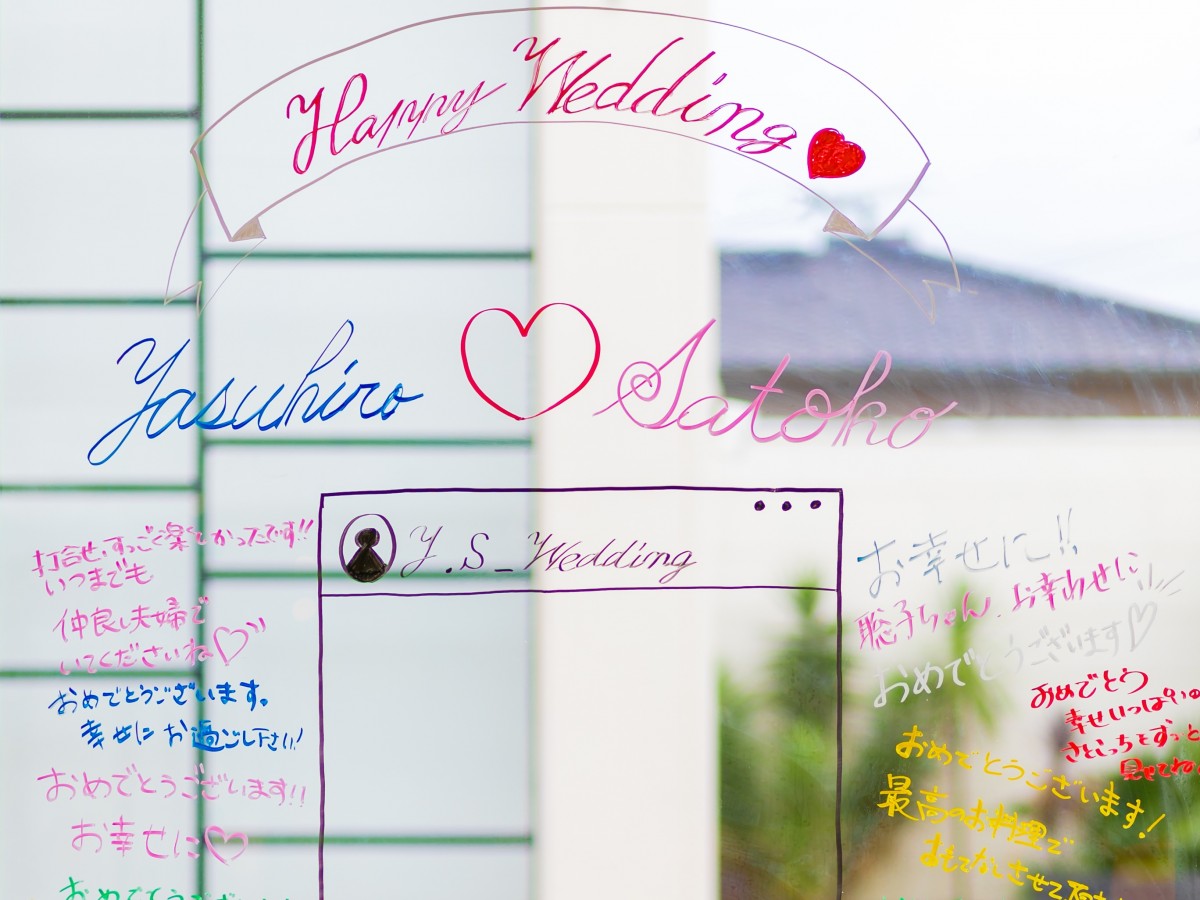 Happy Wedding
Yasuhiro
Satoko
Y.S_Wedding
打合せ、すっごく楽しかったです!!
いつまでも
仲良し夫婦で
いてくださいね
おめでとうございます。
幸せにお過ごし下さい!
おめでとうございます!!
お幸せに
おめでとうございま
お幸せに!!
聡子ちゃん、お幸わせに
おめでとうございます
おめでとう
幸せいっぱいの
さとこっちをずっと
見せてね
おめでとうございます!
最高のお料理で
おもてなしさせて